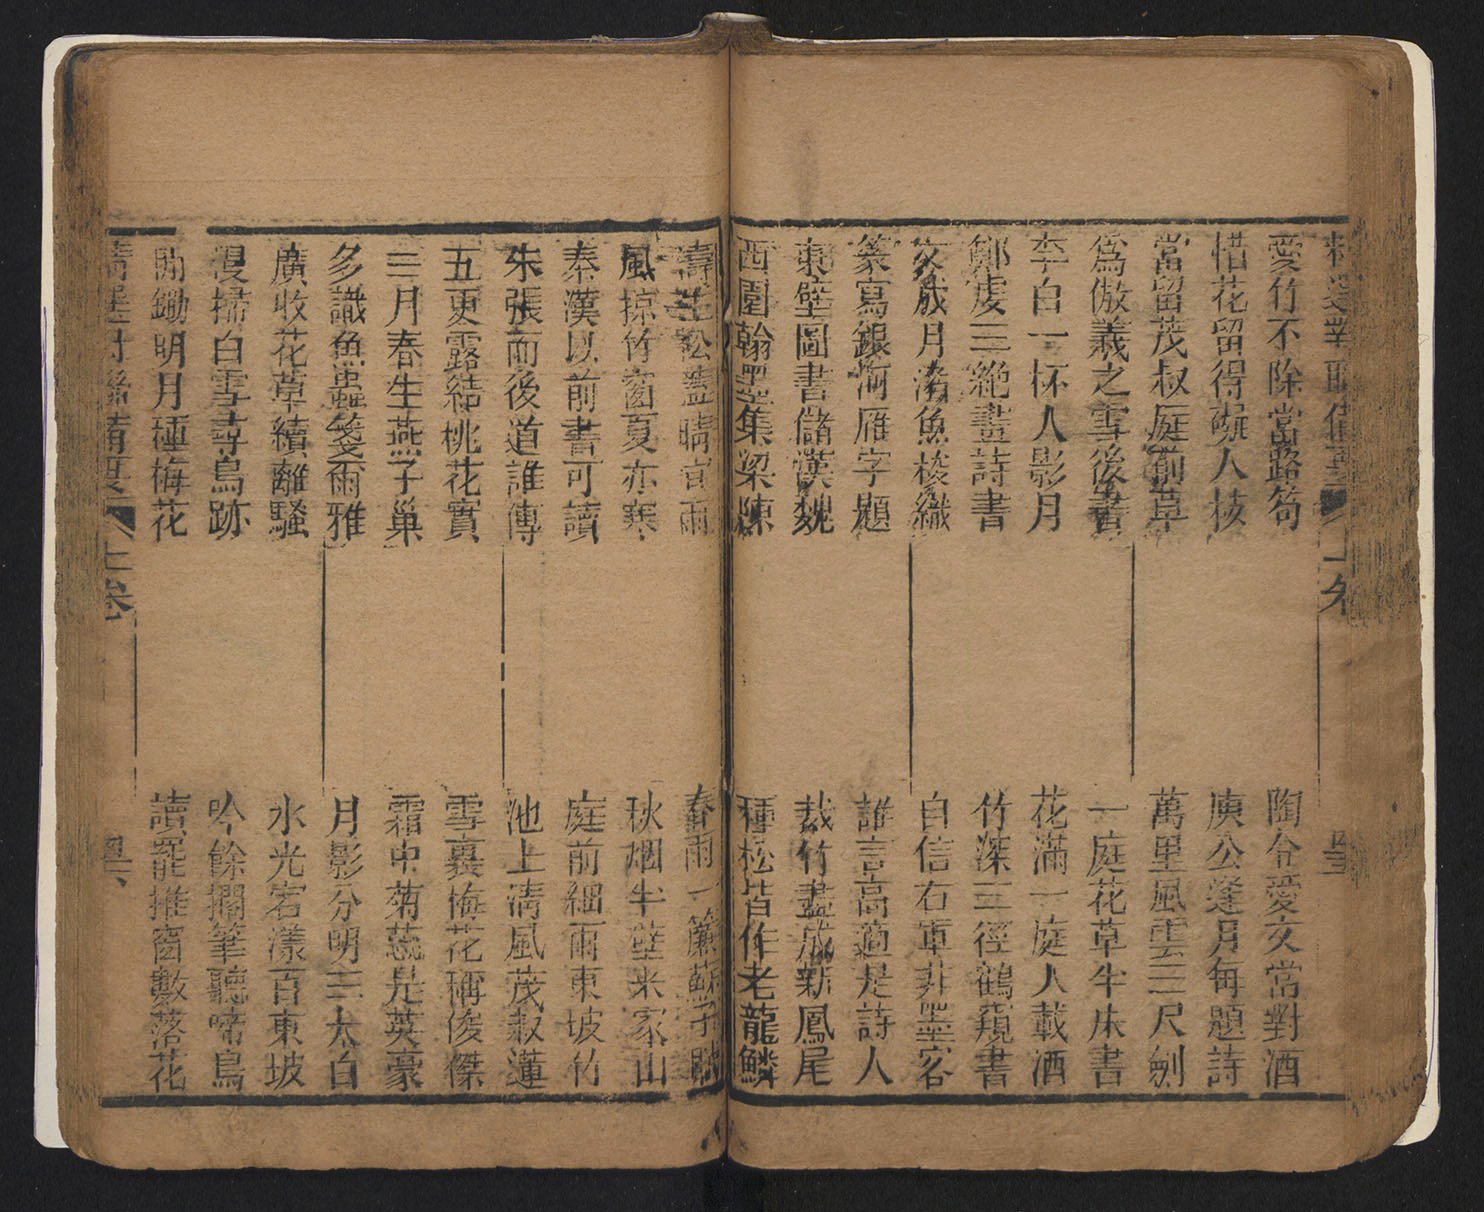 愛竹不除當路筍
惜花留得礙人枝
當留茂叔庭前草
為倣羲之雪後書
李白一杯人影月
鄭虔三絕畫詩書
文成月渚魚梭織
篆寫銀河雁字題
東壁圖書儲漢魏
西園翰墨集梁陳
陶令愛文常對酒
庾公逢月每題詩
萬里風雲三尺劍
一庭花草半床書
花滿一庭人載酒
竹深三徑鶴窺書
自信右軍非墨客
誰言高適是詩人
裁竹盡成新鳳尾
種松皆作老龍鱗
濤生松蓋晴宜雨
風掠竹窗夏亦寒
秦漢以前書可讀
朱張而後道誰傳
五更露結桃花實
三月春生燕子巢
多識魚蟲箋爾雅
廣收花草續離騷
漫掃白雪尋鳥跡
閒鋤明月種梅花
春雨一簾蘇子賦
秋烟半壁米家山
庭前細雨東坡竹
池上清風茂叔蓮
雪裏梅花稱俊傑
霜中菊蕊是英豪
月影分明三太白
水光宕漾百東坡
吟餘擱筆聽啼鳥
讀罷推窗數落花
上卷